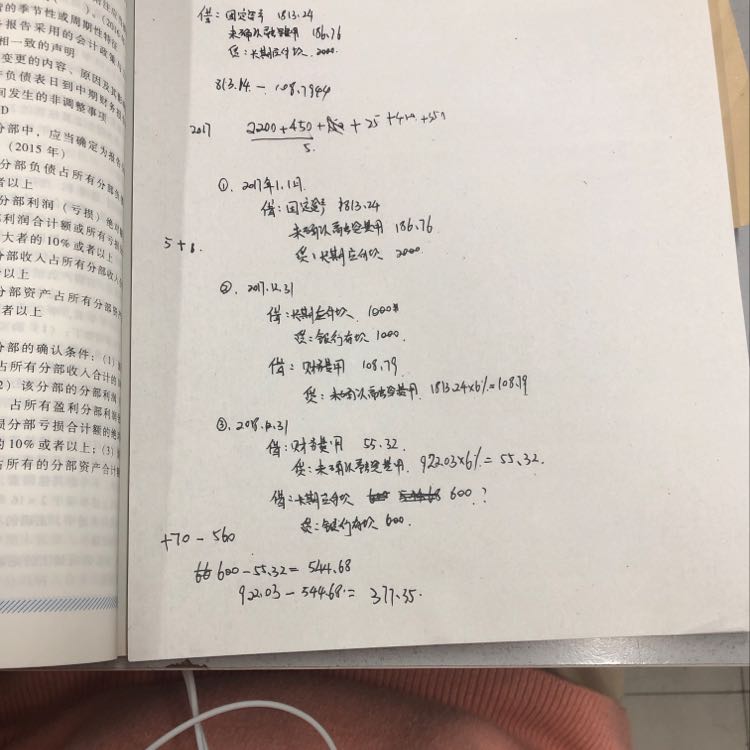 的季节性或周期性特征
报告采用的会计政策
相一致的声明
变更的内容、原因及其影
负债表日到中期财务报
间发生的非调整事项
D
分部中，应当确定为报告
（2015 年）
分部负债占所有分部负
者以上
分部利润（亏损）绝对
利润合计额或所有亏损
大者的 10% 或者以上
分部收入占所有分部收入
以上
分部资产占所有分部资产
者以上
分部的确认条件：（1）
占所有分部收入合计的
2）该分部的分部利润
占所有盈利分部利润
损分部亏损合计额的绝
的 10% 或者以上；（3）
占所有的分部资产合计
借：固定资产 1813.24
未确认融资费用 186.76
贷：长期应付款 2000
813.14 — 108.7944
2017 2200+450+ +25
5
①. 2017年1.1日.
借：固定资产 1813.24
未确认融资费用 186.76
贷：长期应付款 2000
5+
②. 2017.12.31
借：长期应付款 1000
贷：银行存款 1000.
借：财务费用 108.79
贷：未确认融资费用 1813.24×6%=108.79
③. 2018.12.31
借：财务费用 55.32
贷：未确认融资费用 922.03×6%=55.32.
借：长期应付款 600？
贷：银行存款 600.
+70-560
600-55.32=544.68
922.03-544.68=377.35.